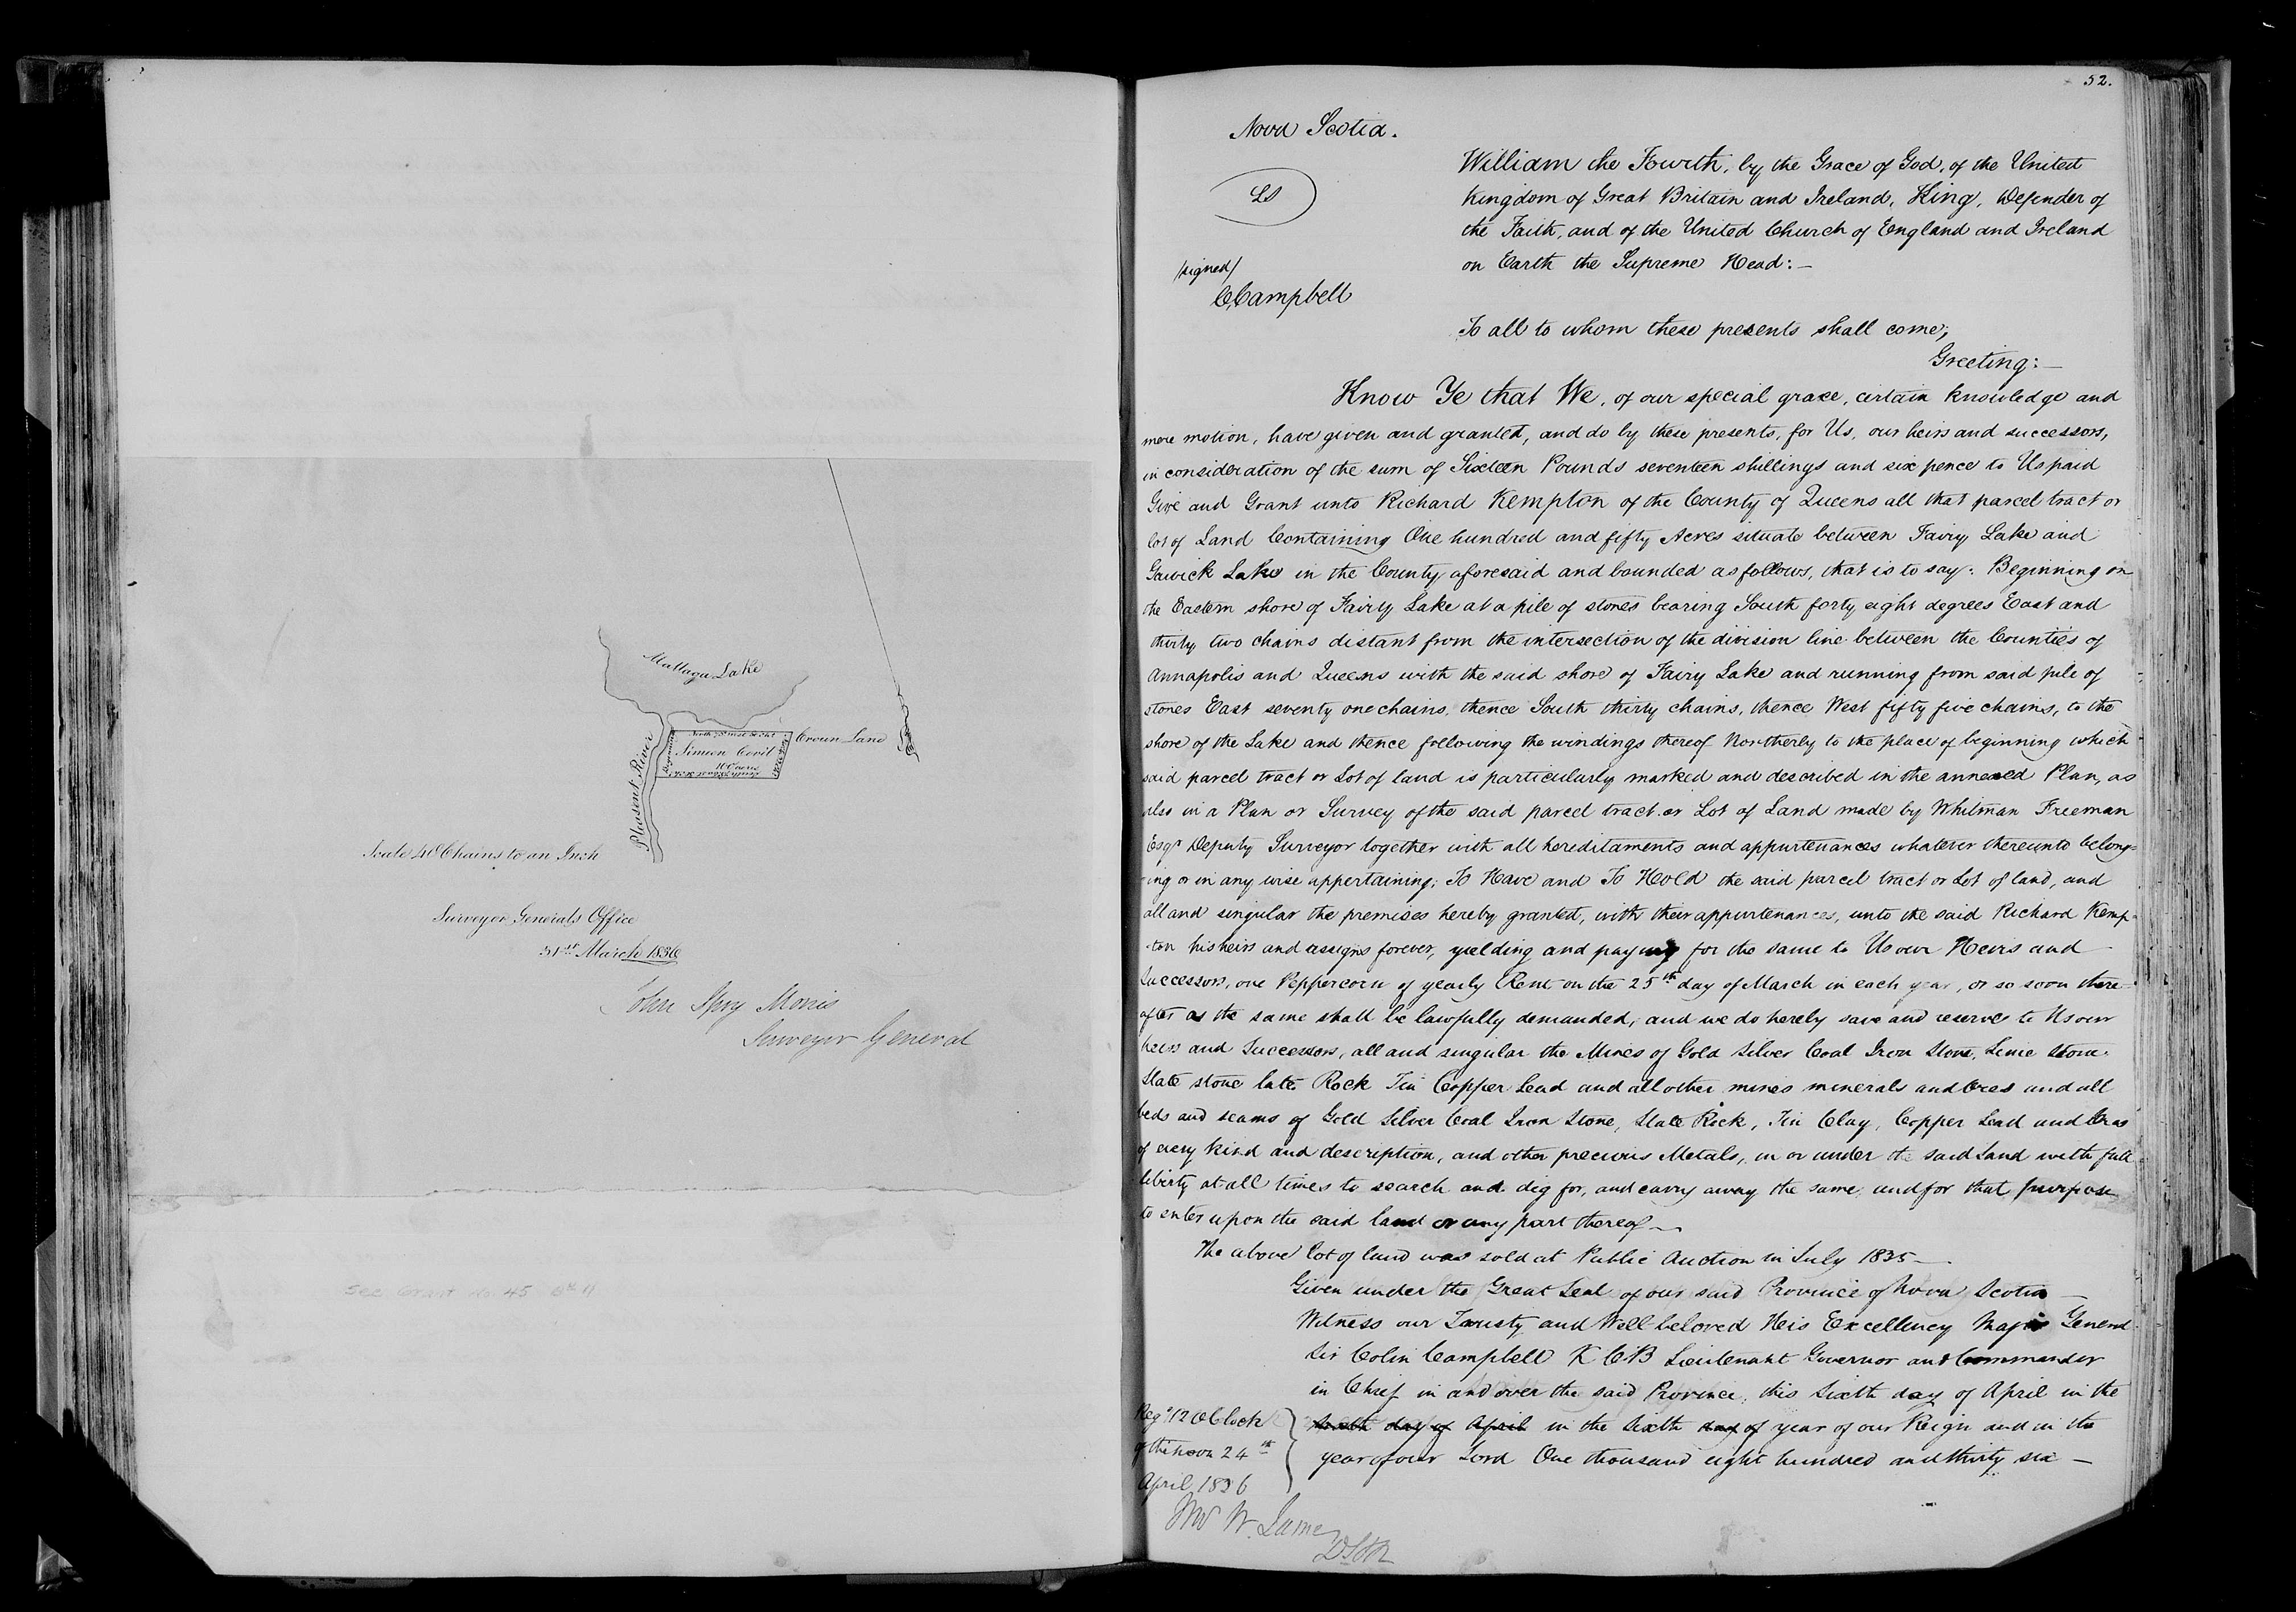 Mallaga Lake
Crown Land
Simeon Covil
100 acres
Pleasent River
Scale 40 Chains to an Inch
Surveyor Generals Office
31st March 1836
John Spry Morris
Surveyor General
See Grant No. 45
52.
Nova Scotia.
LS
/signed/
C Campbell
William the Fourth, by the Grace of God, of the United
Kingdom of Great Britain and Ireland, King, Defender of
the Faith, and of the United Church of England and Ireland
on Earth the Supreme Head:—
To all to whom these presents shall come;
Greeting:—
Know Ye that We, of our special grace, certain knowledge and
mere motion, have given and granted, and do by these presents, for Us, our heirs and successors,
in consideration of the sum of Sixteen Pounds seventeen shillings and six pence to Us paid
Give and Grant unto Richard Kempton of the County of Queens all that parcel tract or
lot of Land Containing One hundred and fifty Acres situate between Fairy Lake and
Lake in the County aforesaid and bounded as follows, that is to say: Beginning on
the Eastern shore of Fairy Lake at a pile of stones bearing South forty eight degrees East and
thirty two chains distant from the intersection of the division line between the Counties of
Annapolis and Queens with the said shore of Fairy Lake and running from said pile of
stones East seventy one chains, thence South thirty chains, thence West fifty five chains, to the
shore of the Lake and thence following the windings thereof Northerly to the place of beginning which
said parcel tract or Lot of land is particularly marked and described in the annexed Plan, as
also in a Plan or Survey of the said parcel tract or Lot of Land made by Whitman Freeman
Esqr Deputy Surveyor together with all hereditaments and appurtenances whatever thereunto belong=
-ing or in any wise appertaining; To Have and To Hold the said parcel tract or Lot of land, and
all and singular the premises hereby granted, with their appurtenances, unto the said Richard Kemp-
-ton his heirs and assigns forever, yielding and paying for the same to Us our Heirs and
Successors, one Peppercorn of yearly Rent on the 25th day of March in each year, or so soon there=
after as the same shall be lawfully demanded; and we do hereby save and reserve to Us our
heirs and Successors, all and singular the Mines of Gold Silver Coal Iron Stone, Lime Stone
Slate stone late Rock Tin Copper Lead and all other mines minerals and Ores and all
beds and seams of Gold Silver Coal Iron Stone, Slate Rock, Tin Clay, Copper Lead and Ores
of every kind and description, and other precious Metals, in or under the said Land with full
liberty at all times to search and dig for, and carry away the same, and for that purpose
to enter upon the said land or any part thereof—
The above lot of land was sold at Public Auction in July 1835—
Given under the Great Seal of our said Province of Nova Scotia—
Witness our Trusty and Well beloved His Excellency Major General
Sir Colin Campbell K C B Lieutenant Governor and Commander
in Chief in and over the said Province, this Sixth day of April in the
Sixth day of April in the Sixth day of year of our Reign and in the
year of our Lord One thousand eight hundred and thirty six—
Regd 12 O'Clock
24th
April 1836
W. James